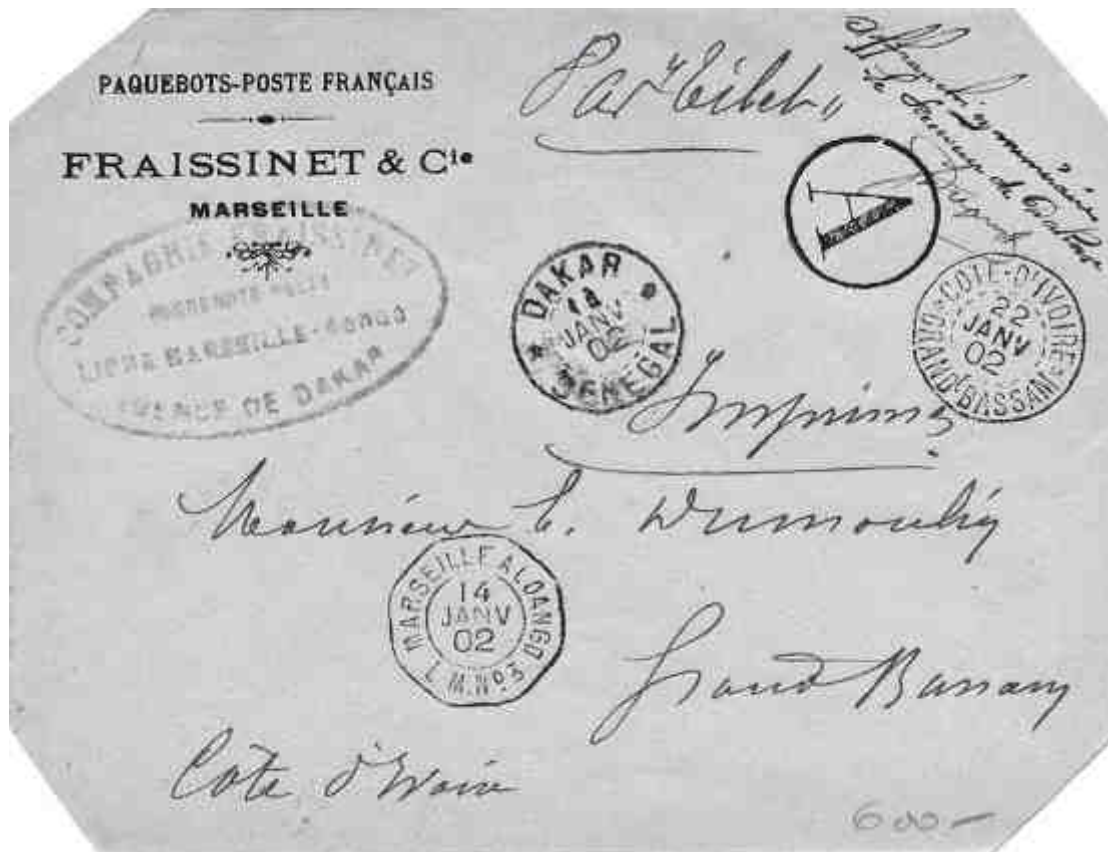 PAQUEBOTS-POSTE FRANÇAIS
FRAISSINET & Cie
MARSEILLE
COMPAGNIE FRAISSINET
LIGNE MARSEILLE-CONGO
AGENCE DE DAKAR
Par "Tibet"
A
DAKAR
14
JANV
02
SENEGAL
COTE-D'IVOIRE
22
JANV
02
GRAND-BASSAM
Imprimés
Monsieur E. Dumoulin
MARSEILLE A LOANGO
14
JANV
02
L.M. No 3
Grand Bassam
Cote d'Ivoire
600 —